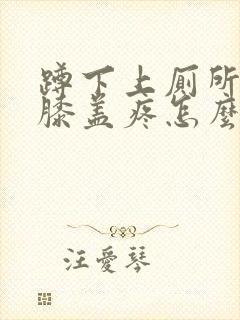 蹲下上厕所
膝盖疼怎麽
汪愛琴